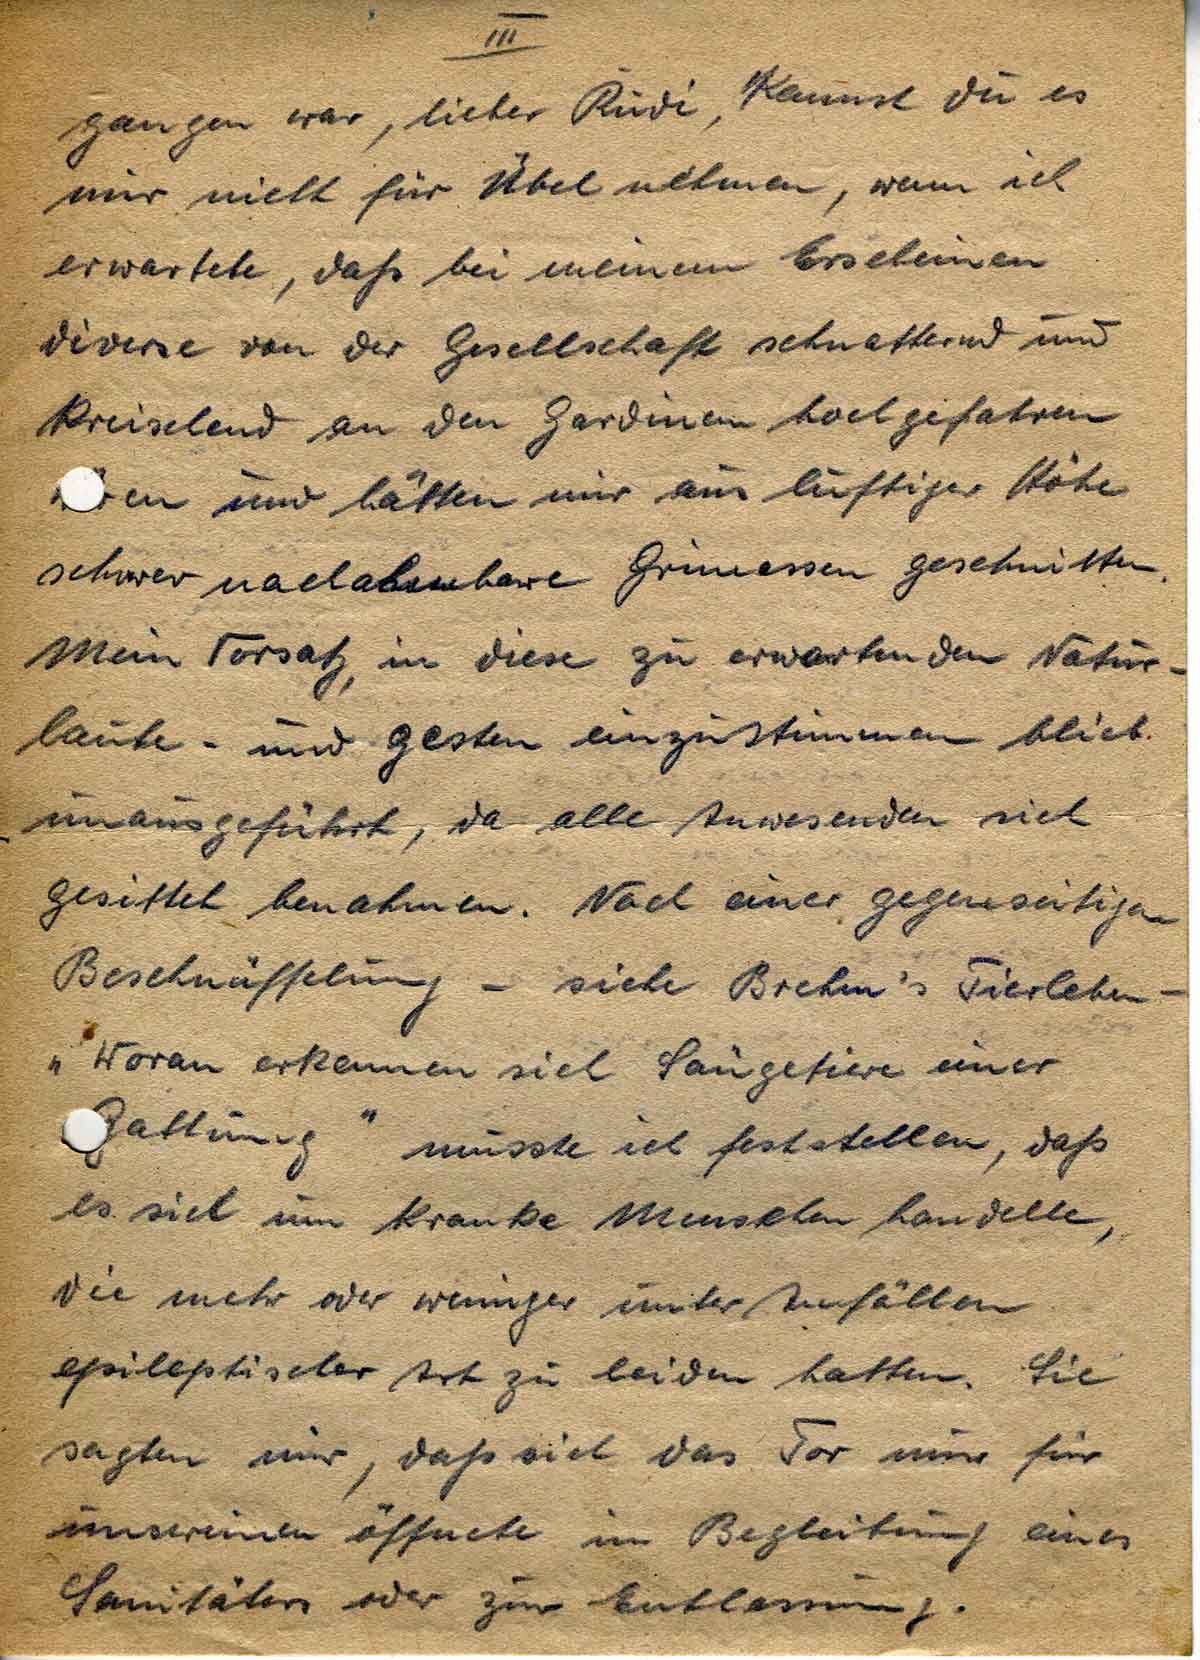 III
gangen war, lieber Rudi, kannst du es
mir nicht für Übel nehmen, wenn ich
erwartete, daß bei meinem Erscheinen
diverse von der Gesellschaft schnatternd und
kreiselend an den Gardinen hochgefahren
wären und hätten mir aus luftiger Höhe
schwer nachahmbare Grimassen geschnitten.
Mein Vorsatz, in diese zu erwartenden Natur-
laute- und gesten einzustimmen blieb
unausgeführt, da alle Anwesenden sich
gesittet benahmen. Nach einer gegenseitigen
Beschnüffelung - siehe Brehm's Tierleben -
"Woran erkennen sich Säugetiere einer
Gattung" musste ich feststellen, daß
es sich um kranke Menschen handelte,
die mehr oder weniger unter Anfällen
epileptischer Art zu leiden hatten. Sie
sagten mir, daß sich das Tor nur für
unsereinen öffnete in Begleitung eines
Sanitäters oder zur Entlassung.